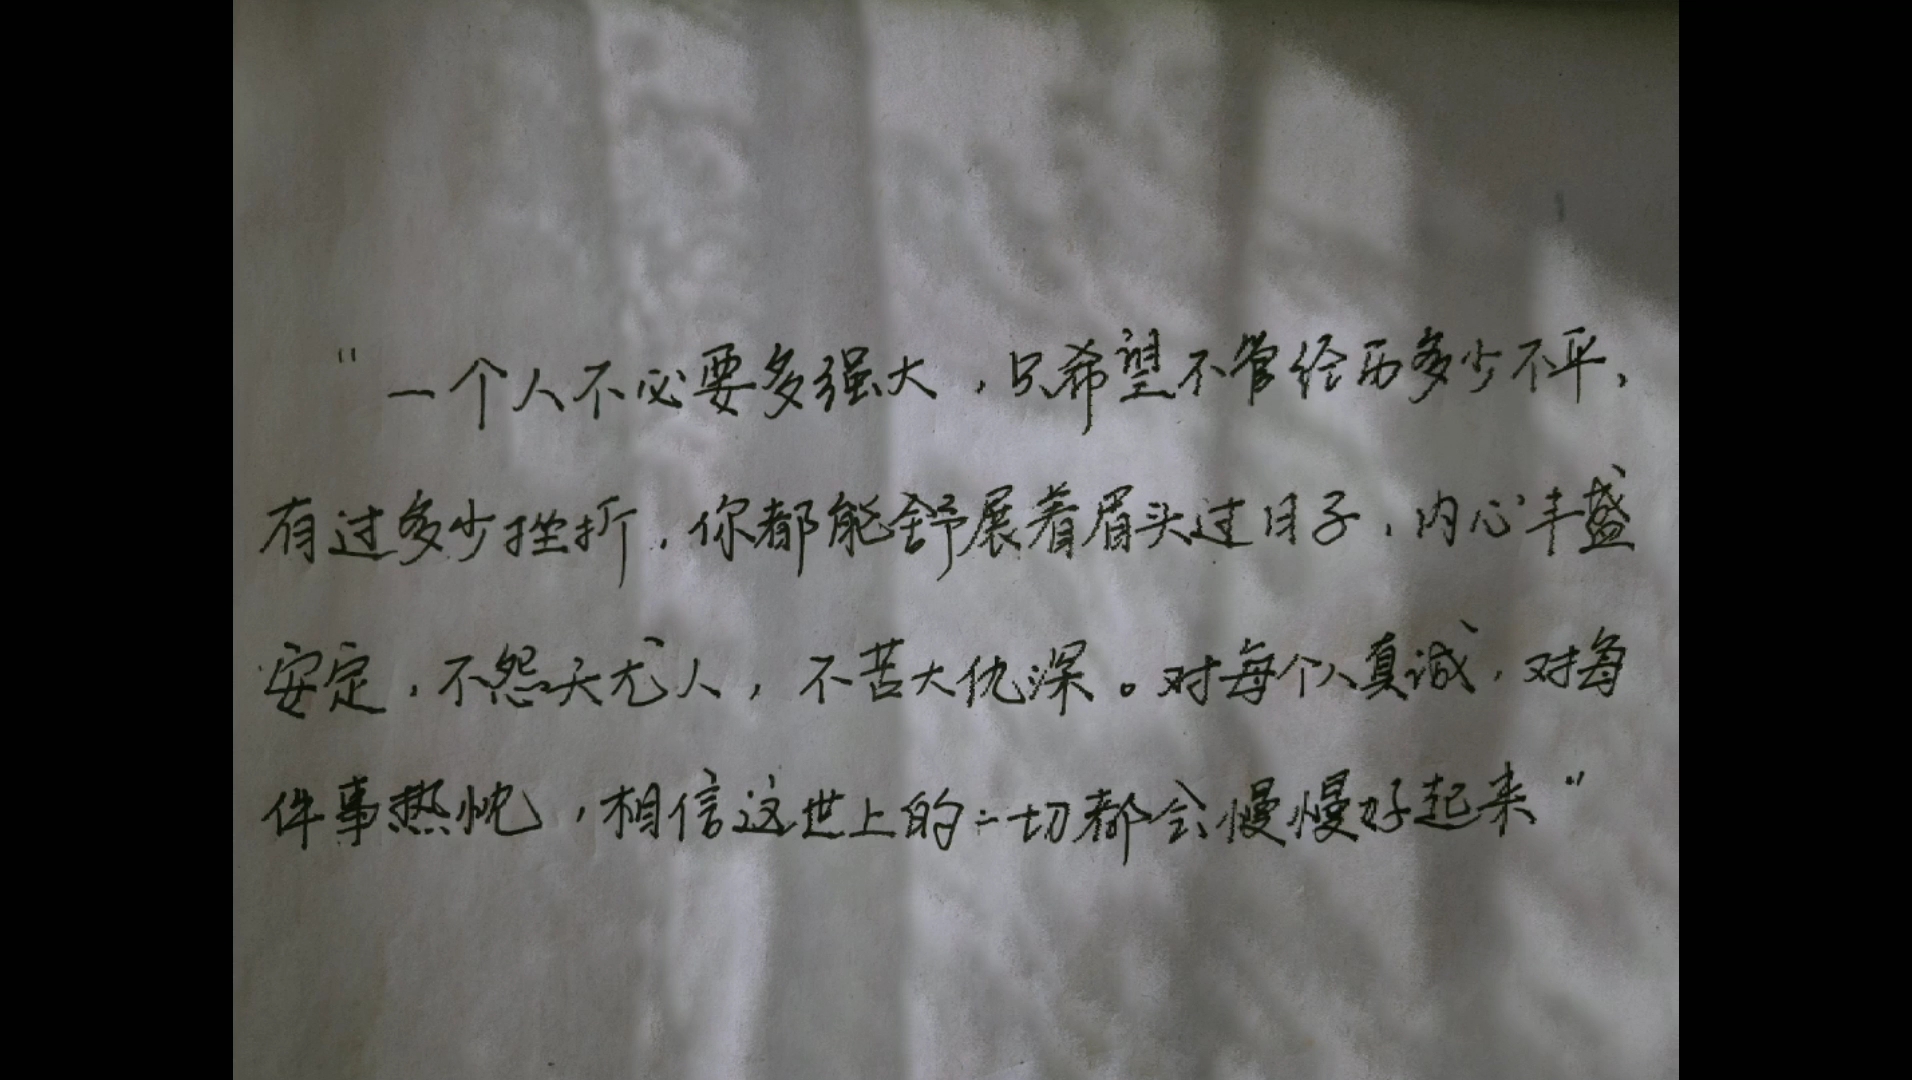 “一个人不必要多强大，只希望不管经历多少不平，
有过多少挫折，你都能舒展着眉头过日子，内心丰盛
安定，不怨天尤人，不苦大仇深。对每个人真诚，对每
件事热忱，相信这世上的一切都会慢慢好起来”